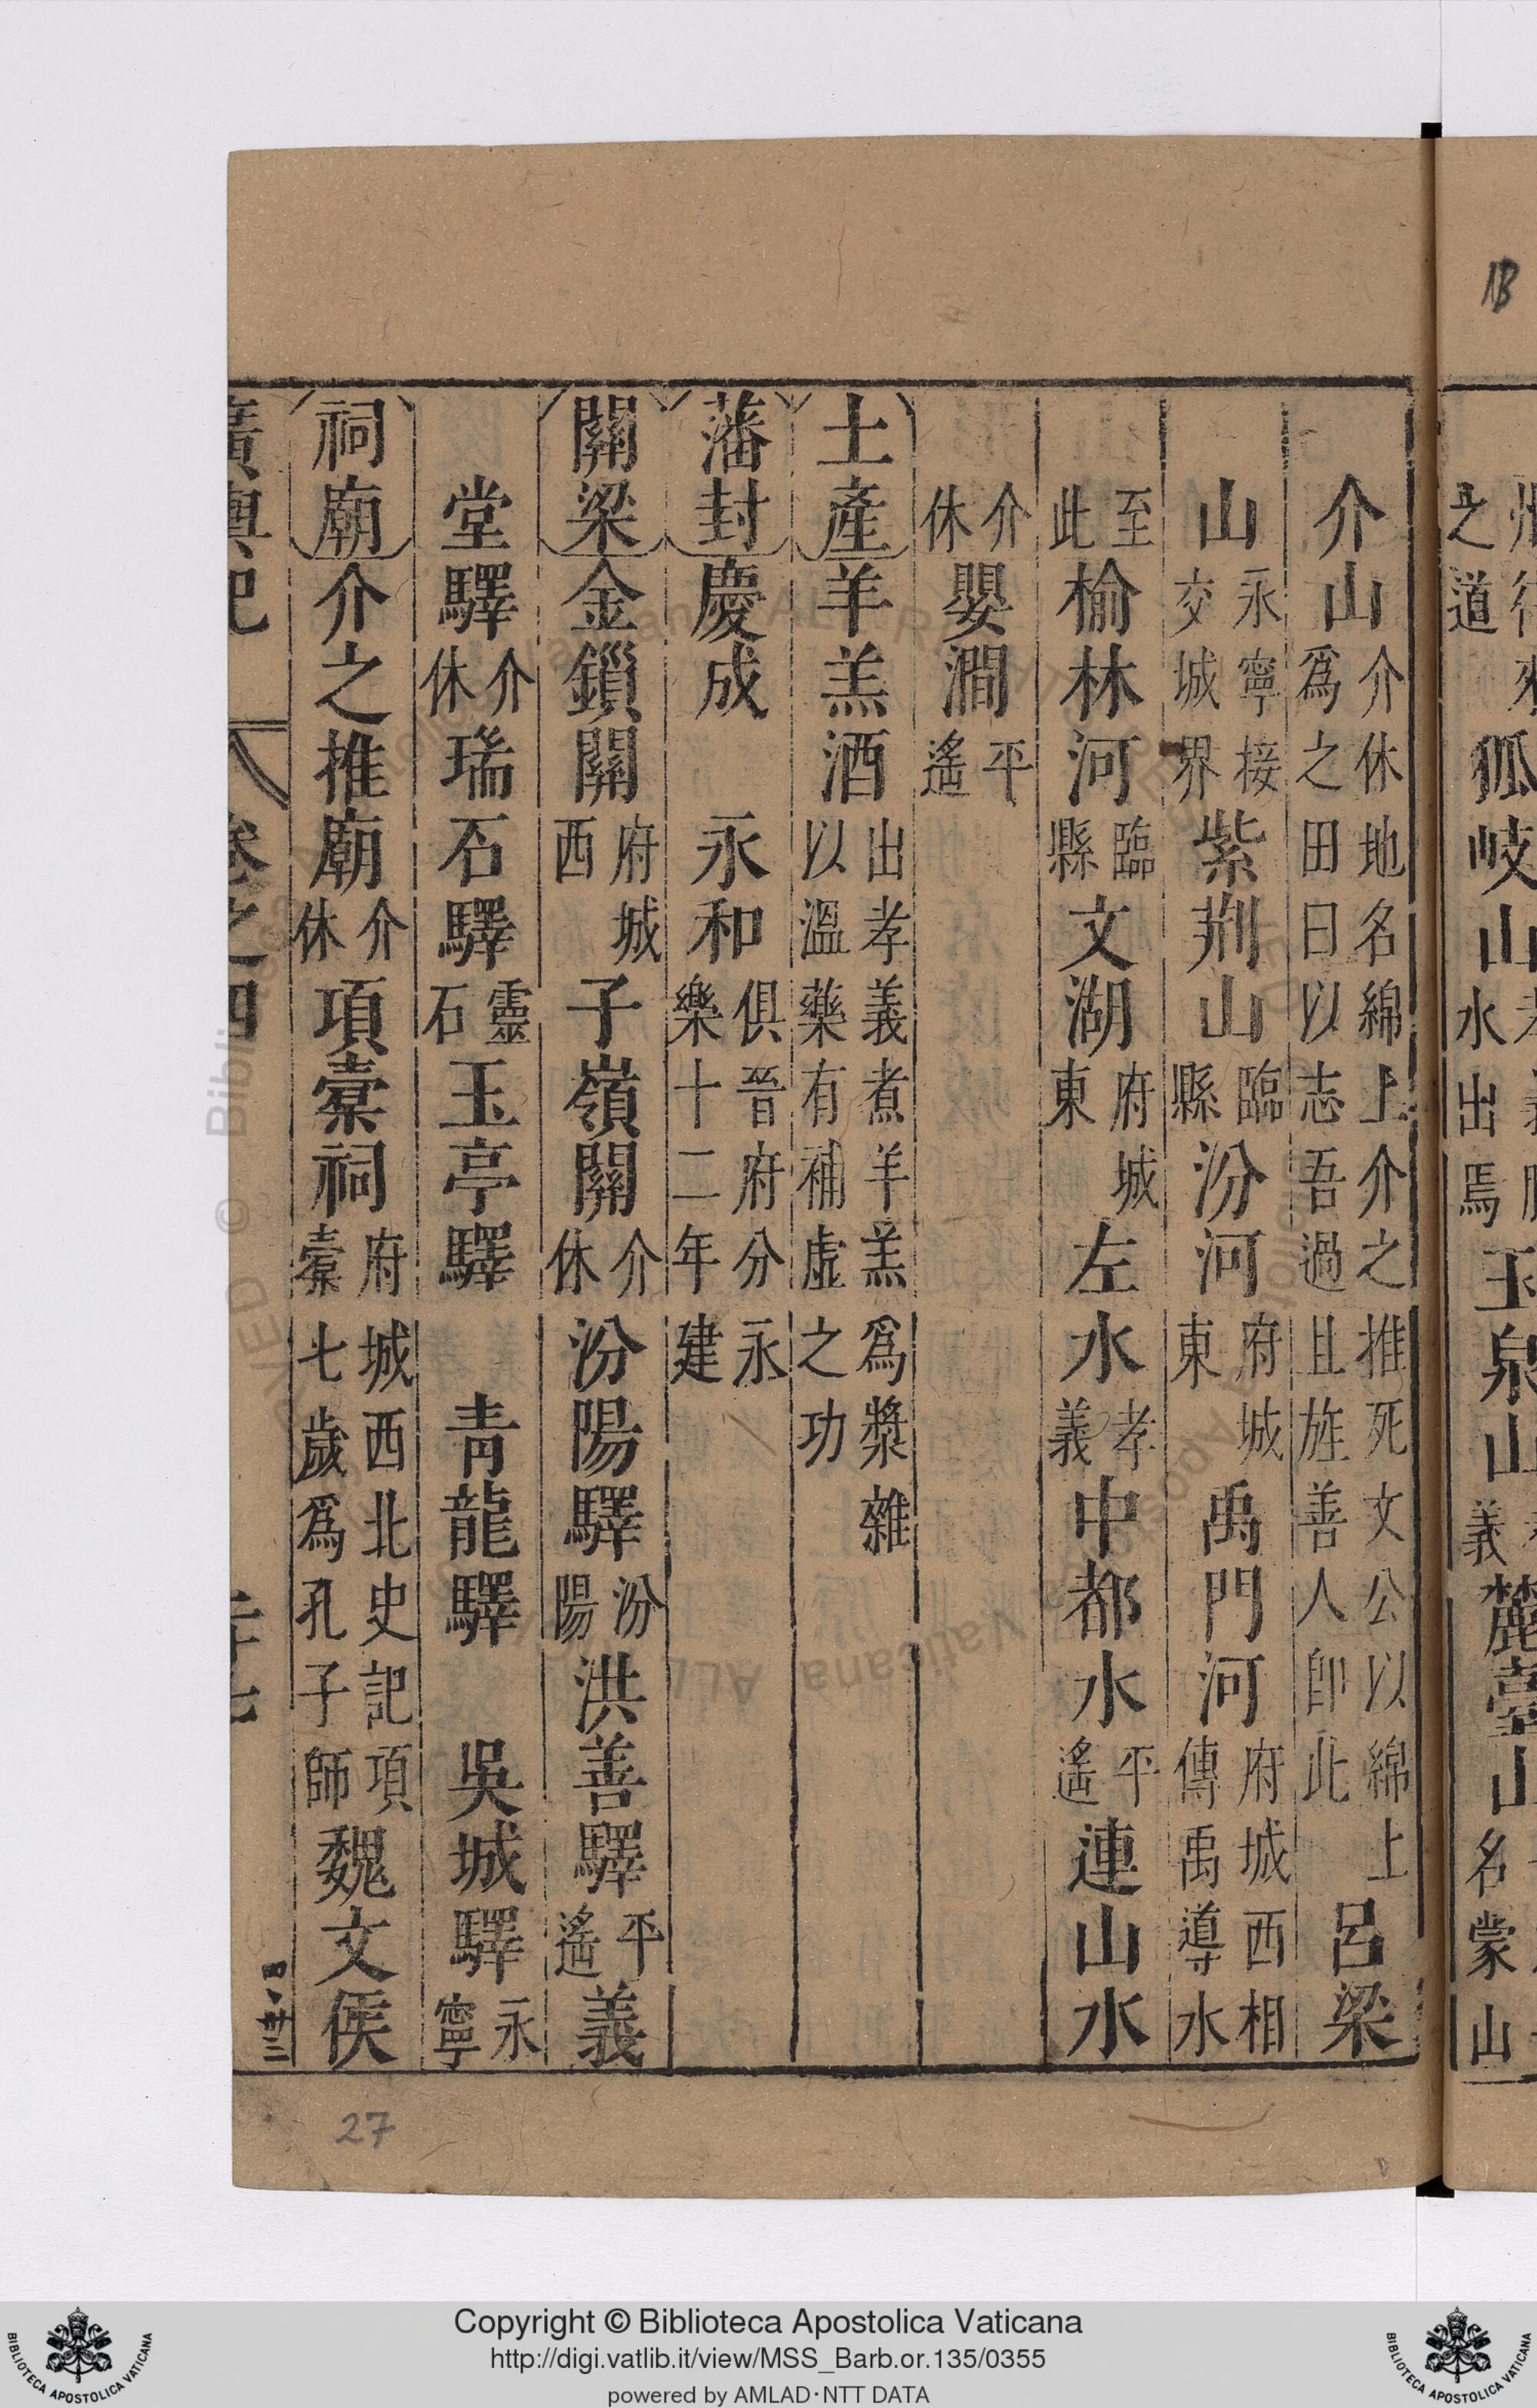 介山介休地名綿上介之推死文公以綿上爲之田曰以志吾過且旌善人卽此呂梁
山永寧接交城界紫荆山臨縣汾河府城東禹門河府城西相傳禹導水
至此榆林河臨縣文湖府城東左水孝義中都水平遙連山水
介休嬰澗平遙
土產羊羔酒出孝義煮羊羔爲漿雜以溫藥有補虛之功
藩封慶成 永和俱晉府分永樂十二年建
關梁金鎻關府城西子嶺關介休汾陽驛汾陽洪善驛平遙義
堂驛介休瑞石驛靈石玉亭驛 青龍驛 吳城驛永寧
祠廟介之推廟介休項橐祠府城西北史記項橐七歲爲孔子師魏文侯
廣輿記 卷之四 二十七
27
1B
狐岐山
水出焉玉泉山
麓臺山
名蒙山
之道
Copyright © Biblioteca Apostolica Vaticana
http://digi.vatlib.it/view/MSS_Barb.or.135/0355
powered by AMLAD·NTT DATA
BIBLIOTECA APOSTOLICA VATICANA
BIBLIOTECA APOSTOLICA VATICANA